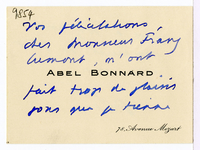 9854
Vos félicitations,
cher Monsieur Franz
Cumont, m'ont
ABEL BONNARD
fait trop de plaisir
pour que je tienne
78, Avenue Mozart